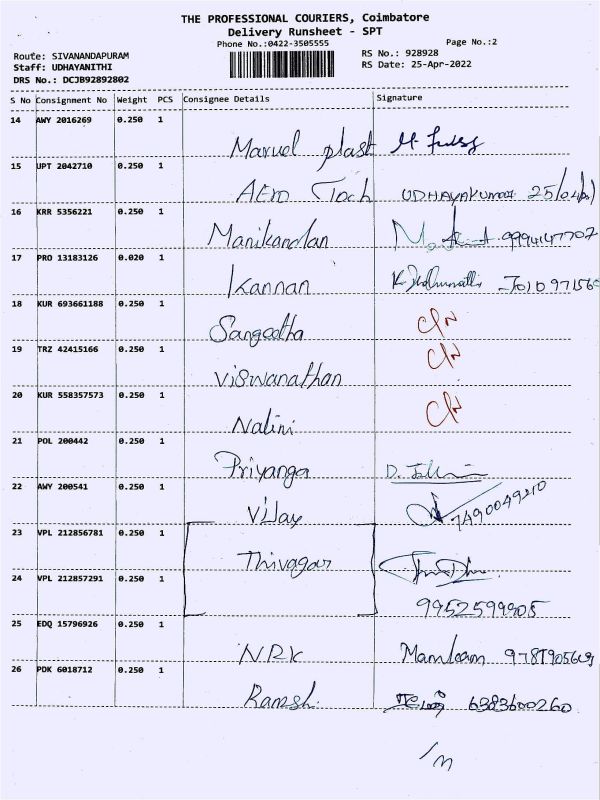 THE PROFESSIONAL COURIERS, Coimbatore
Delivery Runsheet - SPT
Phone No.:0422-3505555
Page No.:2
Route: SIVANANDAPURAM
RS No.: 928928
Staff: UDHAYANITHI
RS Date: 25-Apr-2022
DRS No.: DCJB92892802
S No Consignment No Weight PCS Consignee Details Signature
14 AWY 2016269 0.250 1
Marvel plast
15 UPT 2042710 0.250 1
AEro Tech UDHAYAKUMAR
16 KRR 5356221 0.250 1
Manikandan 9994147707
17 PRO 13183126 0.020 1
Kannan
18 KUR 693661188 0.250 1
Sangeetha C/N
19 TRZ 42415166 0.250 1
Viswanathan C/N
20 KUR 558357573 0.250 1
Nalini C/N
21 POL 200442 0.250 1
Priyanga
22 AWY 200541 0.250 1
Vijay 7490049210
23 VPL 212856781 0.250 1
Thivagar
24 VPL 212857291 0.250 1
9952599905
25 EDQ 15796926 0.250 1
NRK
26 PDK 6018712 0.250 1
Ramesh 6383600260